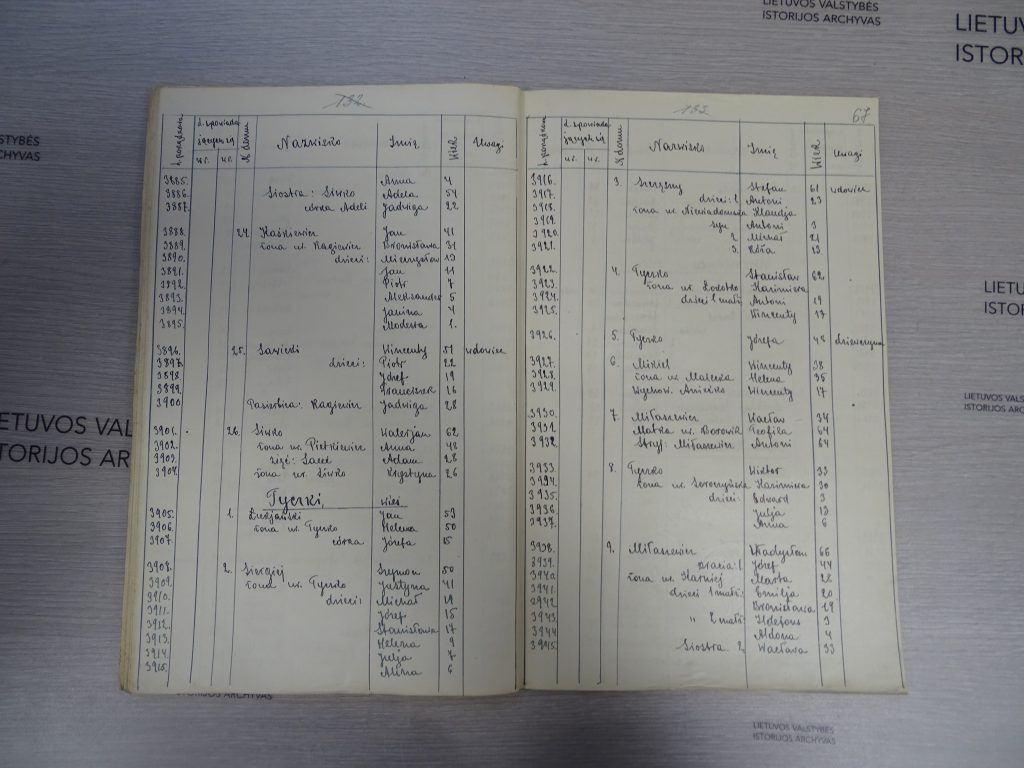 LIETUVOS VALSTYBĖS
ISTORIJOS ARCHYVAS
LIETUV
ISTOR
STYBĖS
ARCHYVAS
132
L. porządkowa
L. spowiada
jących się
u.c.
u.c.
N domu
Nazwisko
Imię
Wiek
Uwagi
3885. Anna 4
3886. Siostra: Siwko Adela 54
3887. córka Adeli Jadwiga 22
3888. 24. Jan 41
3889. żona ur. Raginiewicz Bronisława 31
3890. dzieci: Mieczysław 13
3891. Jan 11
3892. Piotr 7
3893. Aleksander 5
3894. Janina 4
3895. Modesta 1.
3896. 25. Sawicki Wincenty 51 wdowiec
3897. dzieci: Piotr 22
3898. Józef 19
3899. Franciszek 16
3900. Pasierbica: Jadwiga 28
3901. 26. Siwko Walerjan 62
3902. żona ur. Pietkiewicz Anna 48
3903. zięć: Adam 28
3904. żona ur. Siwko Krystyna 26
Tyczki, wieś
3905. 1. Jan 53
3906. żona ur. Tyczko Helena 50
3907. córka Józefa 15
3908. 2. Szymon 50
3909. żona ur. Tyczko Justyna 41
3910. dzieci: Michał 19
3911. Józef 15
3912. Stanisława 17
3913. Helena 9
3914. Julja 7
3915. Alina 6
133
67
L. porządkowa
L. spowiada
jących się
u.c.
u.c.
N domu
Nazwisko
Imię
Wiek
Uwagi
3916. 3. Stefan 61 wdowiec
3917. dzieci: 1. Antoni 23
3918. żona ur. Niewiadomska Klaudja
3919. syn Antoni 3
3920. 2. Michał 21
3921. 3. Róża 13
3922. 4. Tyczko Stanisław 62
3923. żona ur. Kazimiera
3924. dzieci 1 małż. Antoni 19
3925. Wincenty 17
3926. 5. Tyczko Józefa 48
3927. 6. Mikiel Wincenty 38
3928. żona ur. Helena 35
3929. Wychow. Wincenty 17
3930. 7. Miłaszewicz Wacław 34
3931. Matka ur. Borowik Teofila 64
3932. Stryj: Miłaszewicz Antoni 64
3933. 8. Tyczko Wiktor 33
3934. żona ur. Kazimiera 30
3935. dzieci: Edward 3
3936. Julja 13
3937. Anna 6
3938. 9. Miłaszewicz Władysław 66
3939. bracia: 1. Józef 44
3940. żona ur. Marta 28
3941. dzieci 1 małż: Emilja 20
3942. Bronisława 19
3943. " 2 małż: Ildefons 3
3944. Aldona 4
3945. Siostra 2. Wacława 33
LIETUVOS VALS
ISTORIJOS AR
LIETU
ISTOR
LIETUVOS VALSTY
ISTORIJOS ARCH
ISTORIJOS ARCHYVAS
LIETUVOS VALSTYBĖS
ISTORIJOS ARCHYVAS